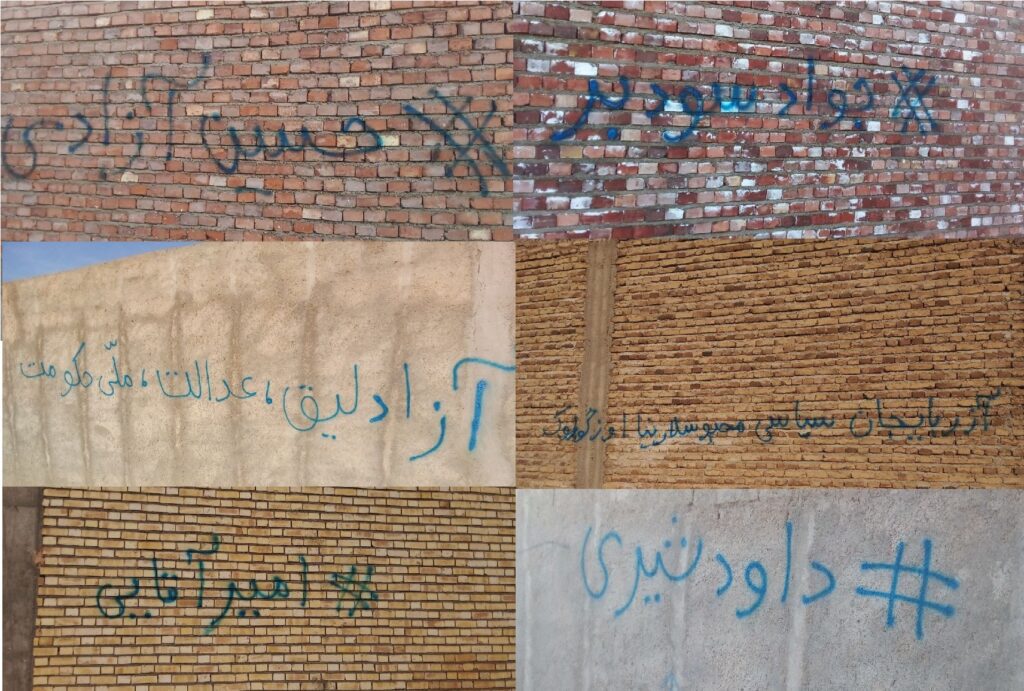 #حسین آزادی
#جواد سودبر
آزادلیق، عدالت، ملّی حکومت
آذربایجان سیاسی محبوسلارینا اوزگورلوک
#امیر آقایی
#داود شیری